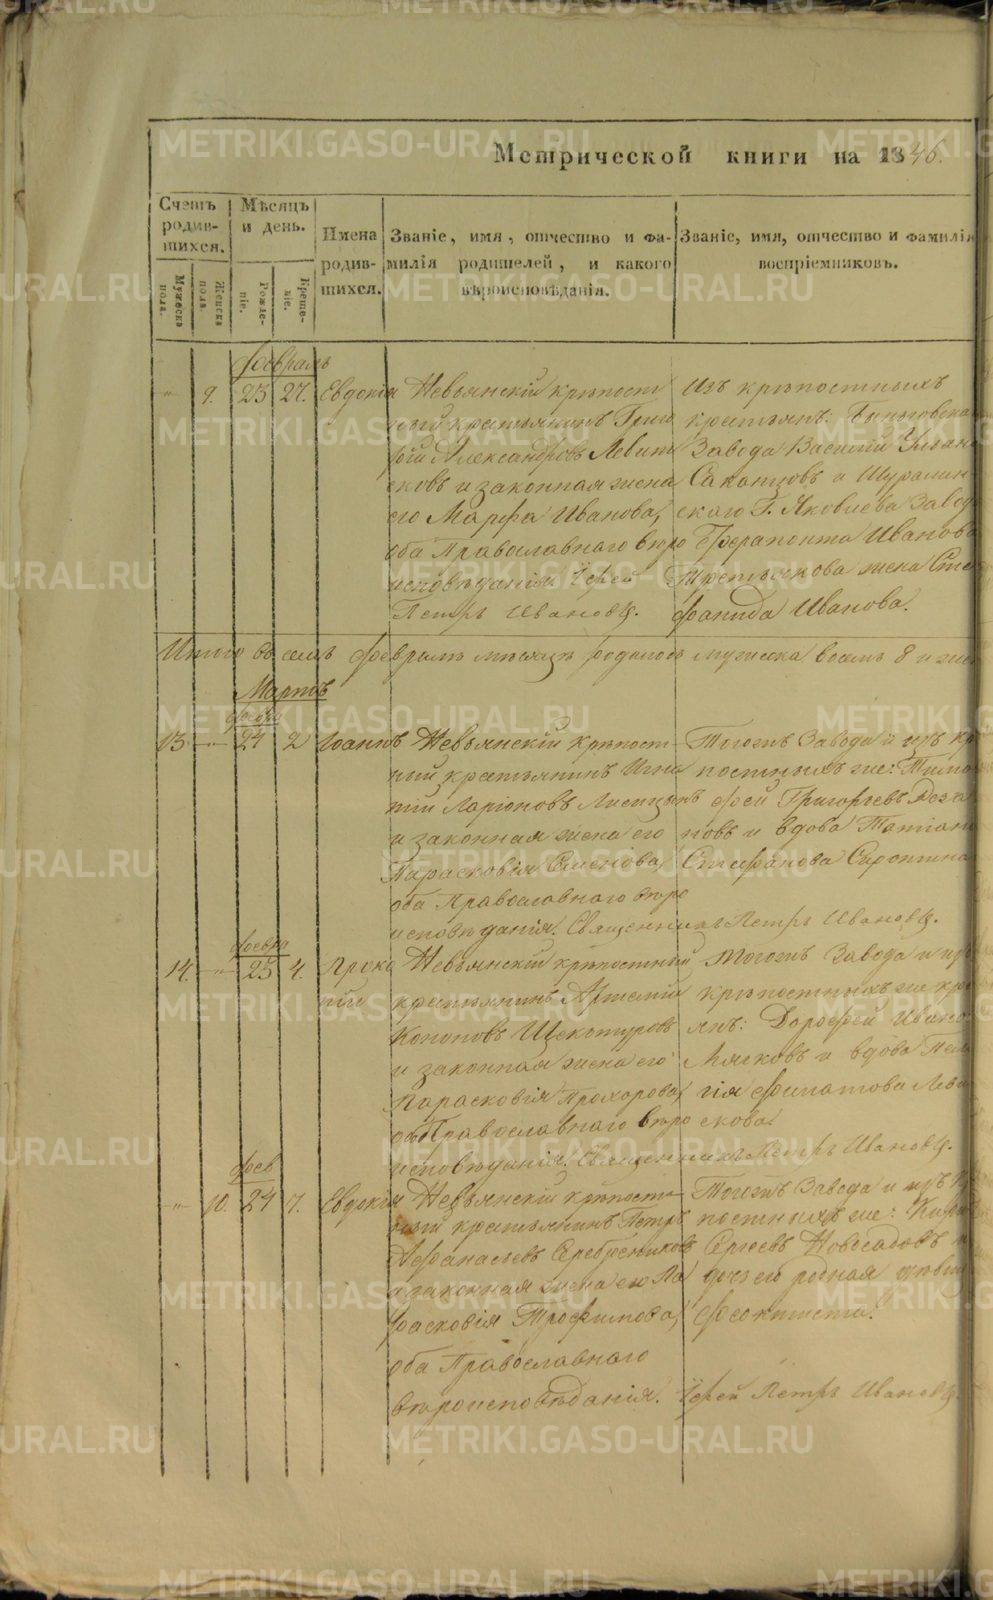 Метрической книги на 1846.
Счетъ родив-шихся.
Мѣсяцъ и день.
Имена родив-шихся.
Званіе, имя, отчество и фа-милія родителей, и какого вѣроисповѣданія.
Званіе, имя, отчество и фамилія воспріемниковъ.
Мужеска пола.
Женска пола.
Рожде-ніе.
Креще-ніе.
Февраль
9. 23 27. Евдокія
Невьянскій крѣпост
ный крестьянинъ Григо
рій Александровъ Левит
сковъ и законная жена
его Марфа Иванова,
оба Православнаго вѣро
исповѣданія. Іерей
Петръ Ивановъ.
Изъ крѣпостныхъ
крестьянъ: Быньговска
Завода Василій
и Шуралин
скаго Г. Яковлева Завод
Ферапонта Иванова
Третьякова жена Сте
фанида Иванова.
Итого въ семъ Февралѣ мѣсяцѣ родилось мужеска восемь 8 и жен
Мартъ
февра
13 24 2 Іоаннъ
Невьянскій крѣпост-
ный крестьянинъ Игна
тій Ларіоновъ Лисицынъ
и законная жена его
Парасковія Семенова,
оба Православнаго вѣро
исповѣданія. Священникъ Петръ Ивановъ.
Тогожъ Завода и изъ кр
постныхъ же: Тимо
фей Григорьевъ
новъ и вдова Татіан
Стефанова
февра
14. 25 4. Проко
пій
Невьянскій крѣпостный
крестьянинъ Артемій
Кононовъ Щекотуровъ
и законная жена его
Парасковія Прохорова,
оба Православнаго вѣро
исповѣданія. Священникъ Петръ Ивановъ.
Тогожъ Завода и изъ
крѣпостныхъ же кре
янъ: Дорофей Ивано
Мягковъ и вдова Пела
гія Филатова Леви
скова.
фев
10. 24 7. Евдокія
Невьянскій крѣпост-
ный крестьянинъ Петръ
Афанасьевъ Серебрениковъ
и законная жена его Па
расковія Трофимова,
оба Православнаго
вѣроисповѣданія. Іерей Петръ Ивановъ.
Тогожъ Завода и изъ
постныхъ же:
Сергеевъ Новосадовъ и
дочь его родная
Феоктиста.